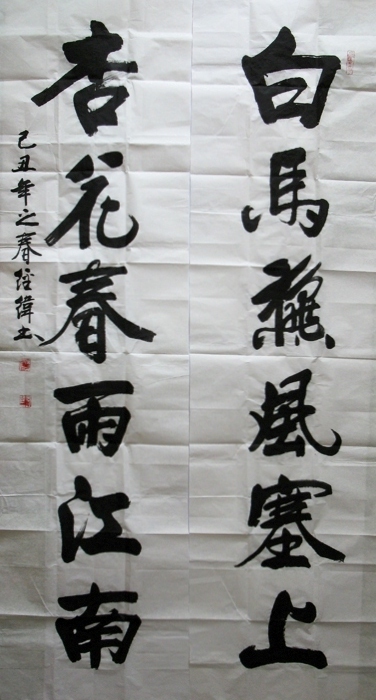 白馬龝風塞上
杏花春雨江南
己丑年之春经偉书